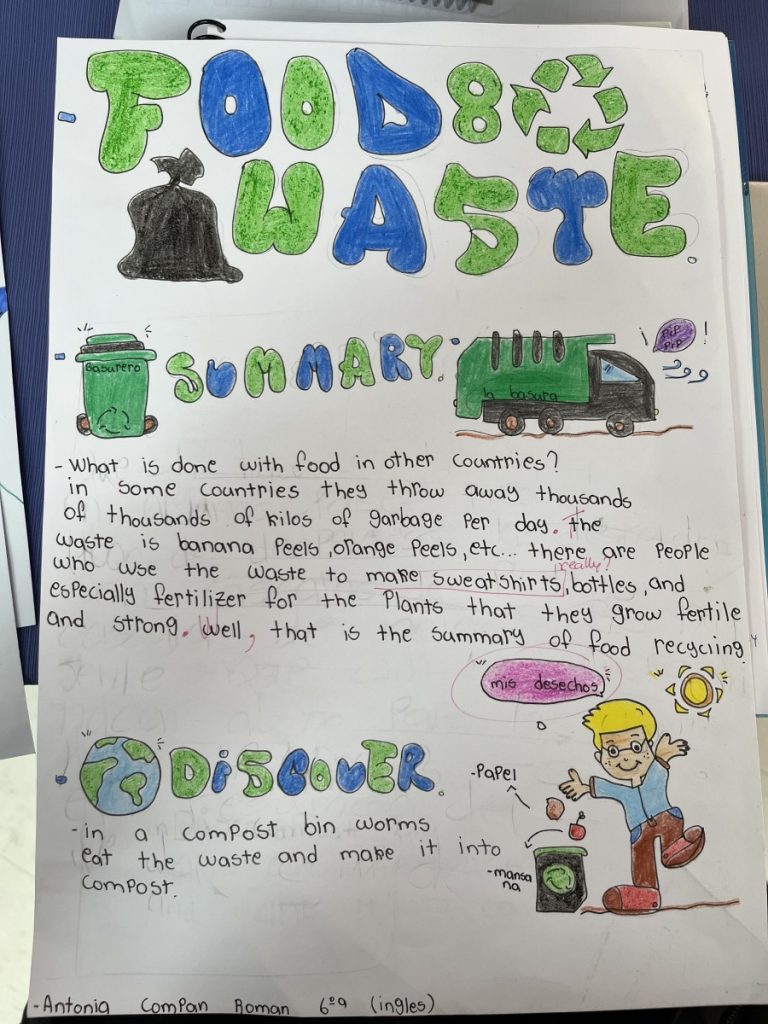 FOOD
WASTE.
Basurero
SUMMARY.
la basura
PiP
PiP
!
- What is done with food in other countries?
in some countries they throw away thousands
of thousands of kilos of garbage per day. the
waste is banana peels, orange peels, etc... there are people
really?
who use the waste to make sweatshirts, bottles, and
especially fertilizer for the plants that they grow fertile
and strong. Well, that is the summary of food recyciing
mis desechos
DiSCOVER.
-Papel
- in a compost bin worms
eat the waste and make it into
compost.
-mansa
na
-Antonia Compan Roman 6ºa (ingles)